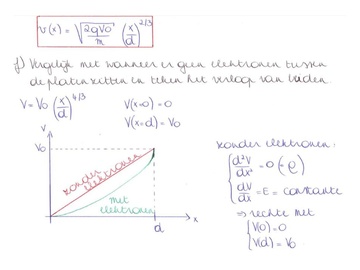 v(x) = √(2qV0/m) (x/d)^2/3
f) Vergelijk met wanneer er geen elektronen tussen
de platen zitten en teken het verloop van beiden.
V = V0 (x/d)^4/3
V(x=0) = 0
V(x=d) = V0
V
V0
zonder elektronen
met elektronen
d
x
zonder elektronen:
d²V/dx² = 0 (-ρ)
dV/dx = E = constante
⇒ rechte met
V(0) = 0
V(d) = V0